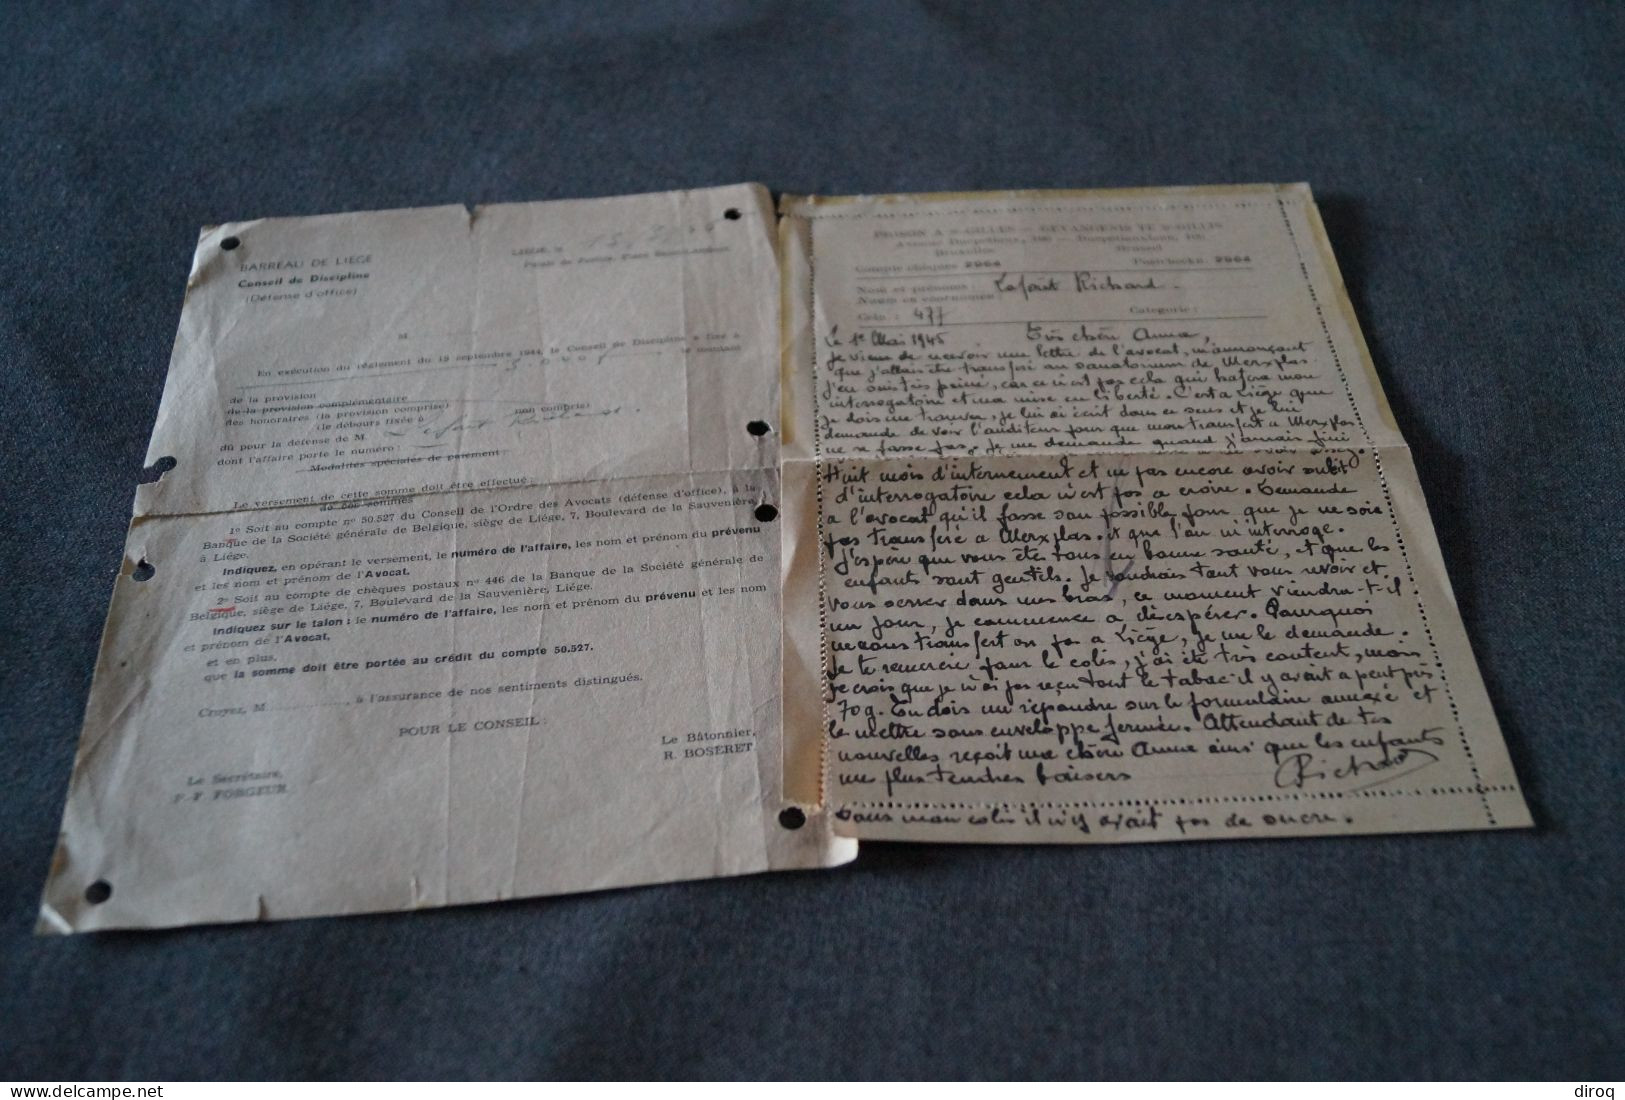 BARREAU DE LIEGE
Conseil de Discipline
(Défense d'office)
LIEGE, le
Palais de Justice, Place Saint-Lambert
M
En exécution du règlement du 19 septembre 1944, le Conseil de Discipline a fixé à
le montant
de la provision
de la provision complémentaire
des honoraires (la provision comprise) non compris)
(le débours fixée à
dû pour la défense de M Lafont Richard.
dont l'affaire porte le numéro :
Modalités spéciales de paiement :
Le versement de cette somme doit être effectué :
de ces sommes
1° Soit au compte n° 50.527 du Conseil de l'Ordre des Avocats (défense d'office), à la
Banque de la Société générale de Belgique, siège de Liége, 7, Boulevard de la Sauvenière,
à Liége.
Indiquez, en opérant le versement, le numéro de l'affaire, les nom et prénom du prévenu
et les nom et prénom de l'Avocat.
2° Soit au compte de chèques postaux n° 446 de la Banque de la Société générale de
Belgique, siège de Liége, 7, Boulevard de la Sauvenière, Liége.
Indiquez sur le talon : le numéro de l'affaire, les nom et prénom du prévenu et les nom
et prénom de l'Avocat,
et en plus,
que la somme doit être portée au crédit du compte 50.527.
Croyez, M............, à l'assurance de nos sentiments distingués.
POUR LE CONSEIL :
Le Bâtonnier,
R. BOSERET.
Le Secrétaire,
P.-F. FORGEUR.
PRISON A St GILLES — GEVANGENIS TE St GILLIS
Avenue Ducpétiaux, 106 — Ducpétiauxlaan, 106
Bruxelles Brussel
Compte chèques 2964 Postcheckn. 2964
Nom et prénoms : Lafont Richard.
Naam en voornamen :
Celn : 477 Categorie :
Le 1e Mai 1945 Très chère Anna,
je viens de recevoir une lettre de l'avocat, m'annonçant
que j'allais être transféré au sanatorium de Merxplas.
j'en suis très peiné, car ce n'est pas cela qui hatera mon
interrogatoire et ma mise en liberté. C'est à Liège que
je dois me trouver, je lui ai écrit dans ce sens et je lui
demande de voir l'auditeur pour que mon transfert a Merxplas
ne se fasse pas. Je me demande quand j'aurais fini
Huit mois d'internement et ne pas encore avoir subit
d'interrogatoire cela n'est pas a croire. Demande
a l'avocat qu'il fasse son possible pour que je ne soie
pas transféré a Merxplas. et que l'on m'interroge.
J'espère que vous êtes tous en bonne santé, et que les
enfants sont gentils. Je voudrais tant vous revoir et
vous serrer dans mes bras, ce moment viendra-t-il
un jour, je commence a désespérer. Pourquoi
ne nous transfert on pas a Liège, je me le demande.
Je te remercie pour le colis, j'ai été très content, mais
je crois que je n'ai pas reçu tout le tabac il y avait a peut près
70g. Tu dois me répondre sur le formulaire annexé et
le mettre sous enveloppe fermée. Attendant de tes
nouvelles reçoit ma chère Anna ainsi que les enfants
me plus tendres baisers
Richard
Dans mon colis il n'y avait pas de sucre.
diroq